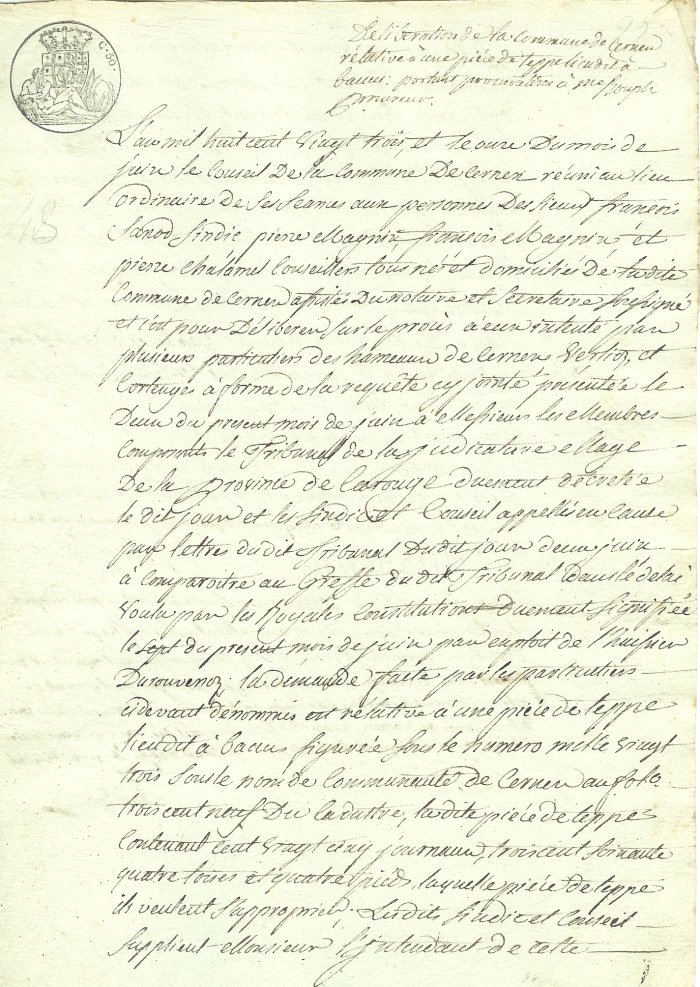 C. 50.
Déliberation de la Commune de Cernex
rélative à une piéce de teppe lieudit à
bacus; portant procuration à me
Procureur.
L'an mil huit cent vingt trois, et le onze Du mois de
juin le Conseil De la Commune De Cernex réuni au lieu
ordinaire de ses séances aux personnes Des sieurs françois
Sindic pierre Magnin, francois Magnin et
pierre Chalamel Conseillers tous né et domiciliés De la dite
Commune de Cernex assistés Du notaire et Secretaire soussigné
et c'est pour Déliberer sur le procès à eux intenté par
plusieurs particuliers des hameaux de Cernex Verlioz, et
Cortenges à forme de la requête cy jointe présentée le
Deux du present mois de juin à Messieurs les Membres
Composants le Tribunal de la judicature Mage
De la Province de Carouge duement décretée
le dit jour et les sindic et Conseil appellés en Cause
par lettres du dit Tribunal Du dit jour deux juin
à Comparoitre au Greffe du dit Tribunal dans le délai
Voulu par les Royales Constitutions duement Signifiée
le sept du present mois de juin par exploit de l'huissier
Durouvenoz; la demande faite par les particuliers
cidevant dénommés est rélative à une piéce de teppe
lieudit à bacus figurée sous le numero mille vingt
trois sous le nom de Communauté de Cernex au folio
trois cent neuf Du Cadastre, la dite piéce de teppe
Contenant Cent vingt cinq journaux, trois cent soixante
quatre toises et quatre pieds, laquelle piéce de teppe
ils veulent s'approprier; Lesdits Sindic et Conseil
Supplient Monsieur l'Intendant de cette